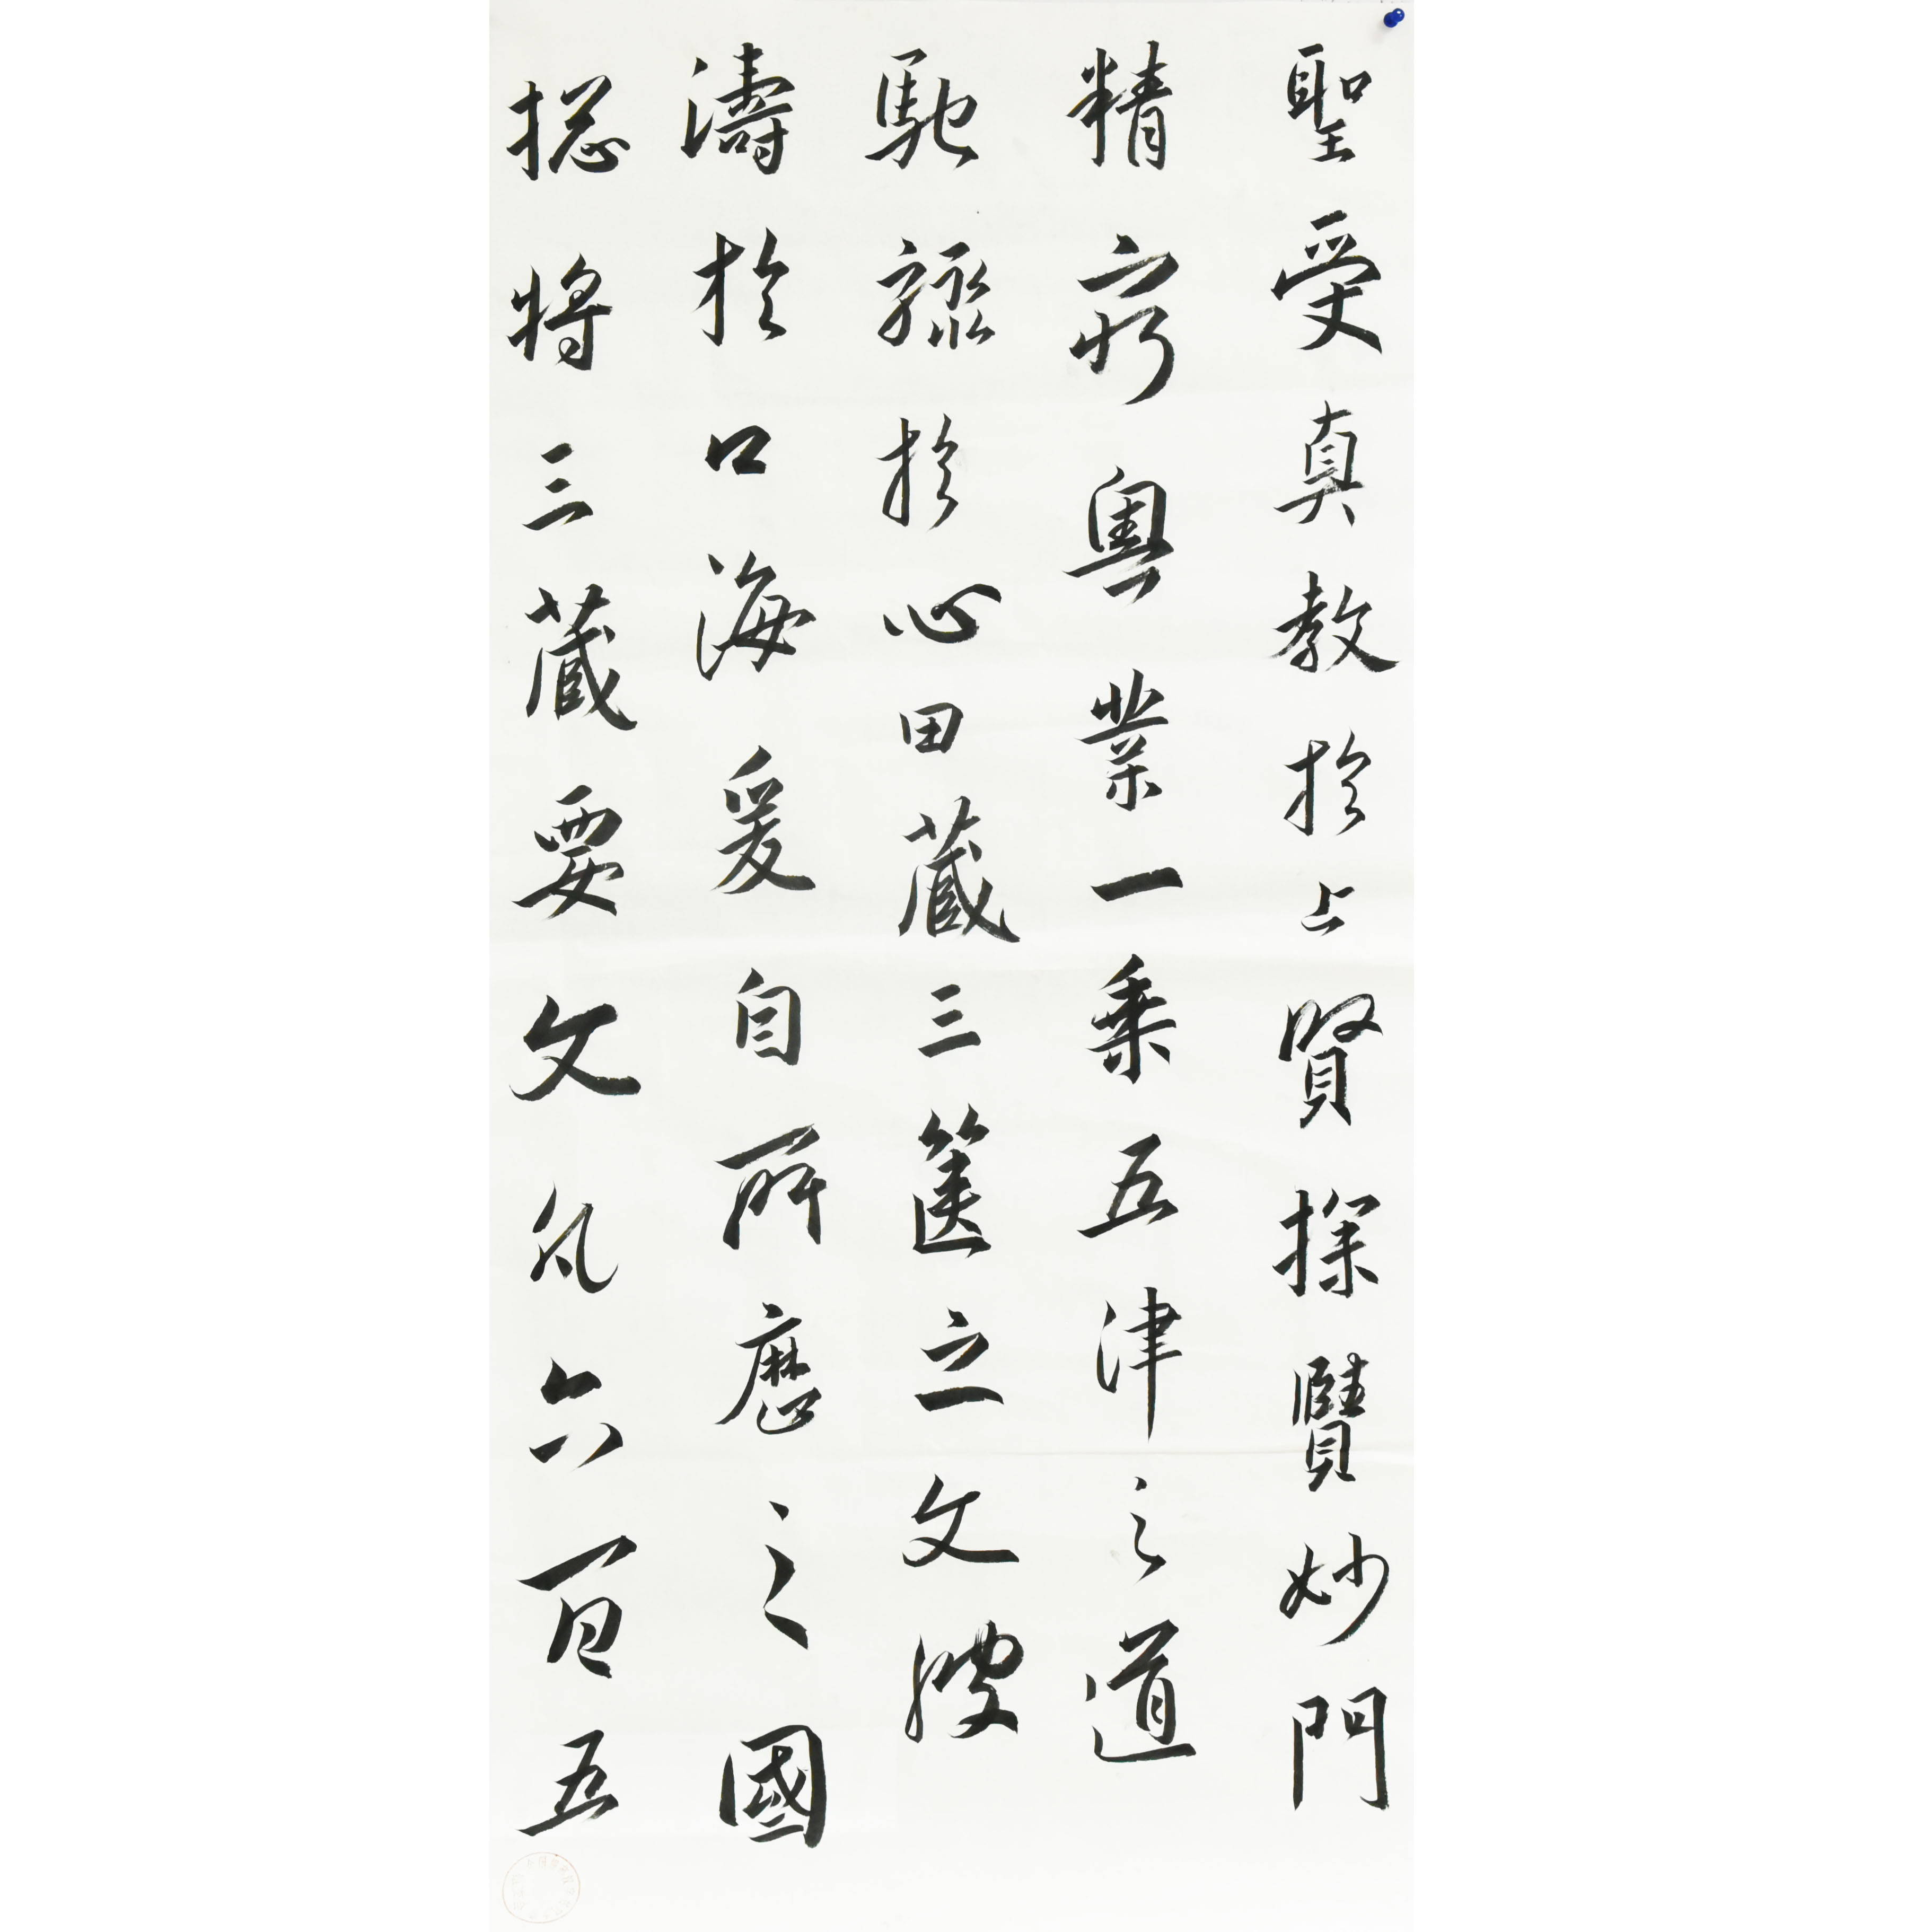 聖受真教於上賢探賾妙門
精窮奧業一乘五津之道
馳驟於心田八藏三篋之文波
濤於口海爰自所歷之國
摠將三藏要文凡六百五